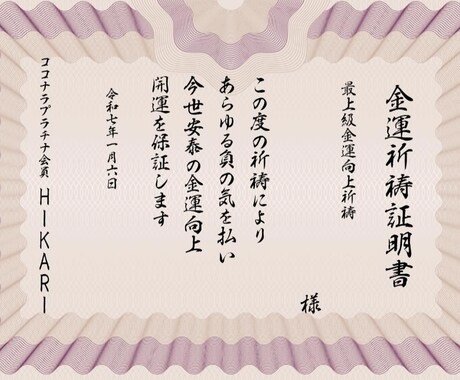 金運祈祷証明書
最上級金運向上祈祷
様
この度の祈祷により
あらゆる負の気を払い
今世安泰の金運向上
開運を保証します
令和七年一月六日
ココナラプラチナ会員 HIKARI